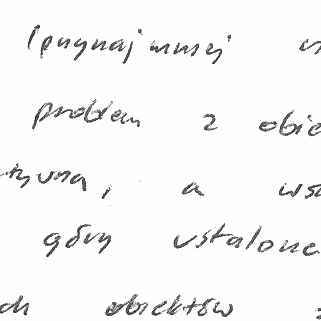 (przynajmniej
problem z obie
tywna, a ws
góry ustalone
ch obiektów